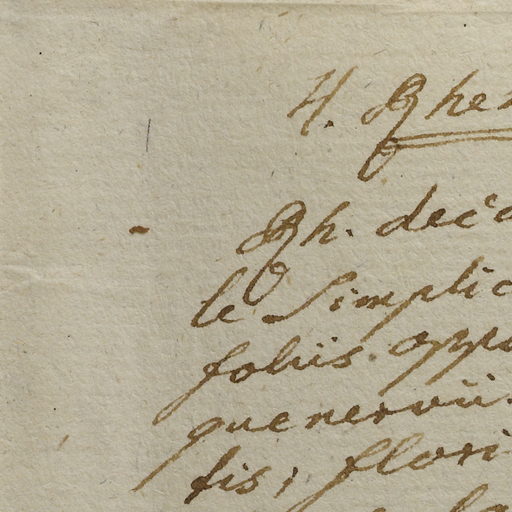 4. Rhe
Rh. deca
le Simplic
foliis oppo
quenervii
tis, flori